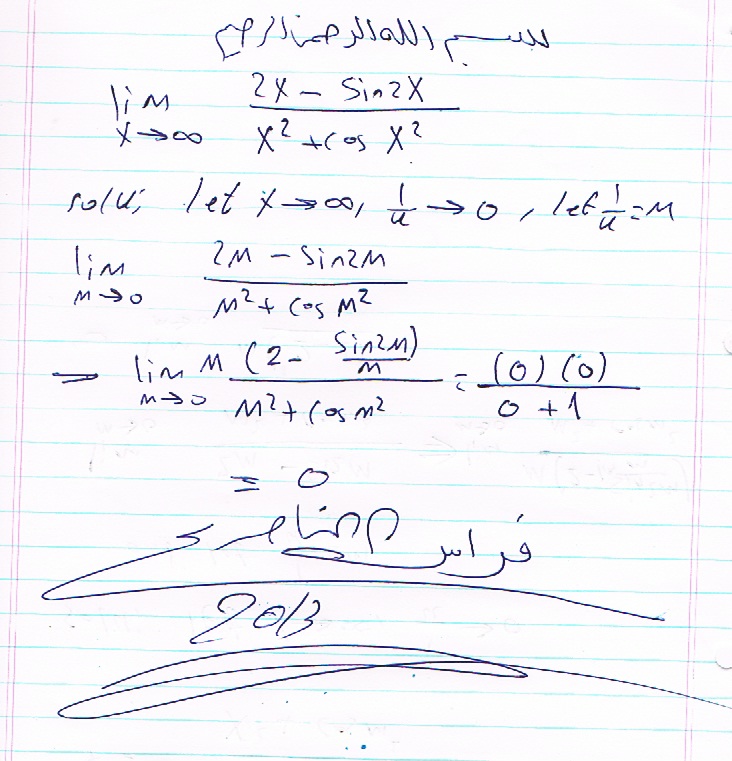 بسم الله الرحمن الرحيم
lim x→∞ (2x - Sin2x)/(x² + cos x²)
solu; let x→∞, 1/u → 0, let 1/u = M
lim M→0 (2M - Sin2M)/(M² + cos M²)
⇒ lim M→0 M (2 - Sin2M/M)/(M² + cos M²) = (0)(0)/(0 + 1)
= 0
فراس
2013